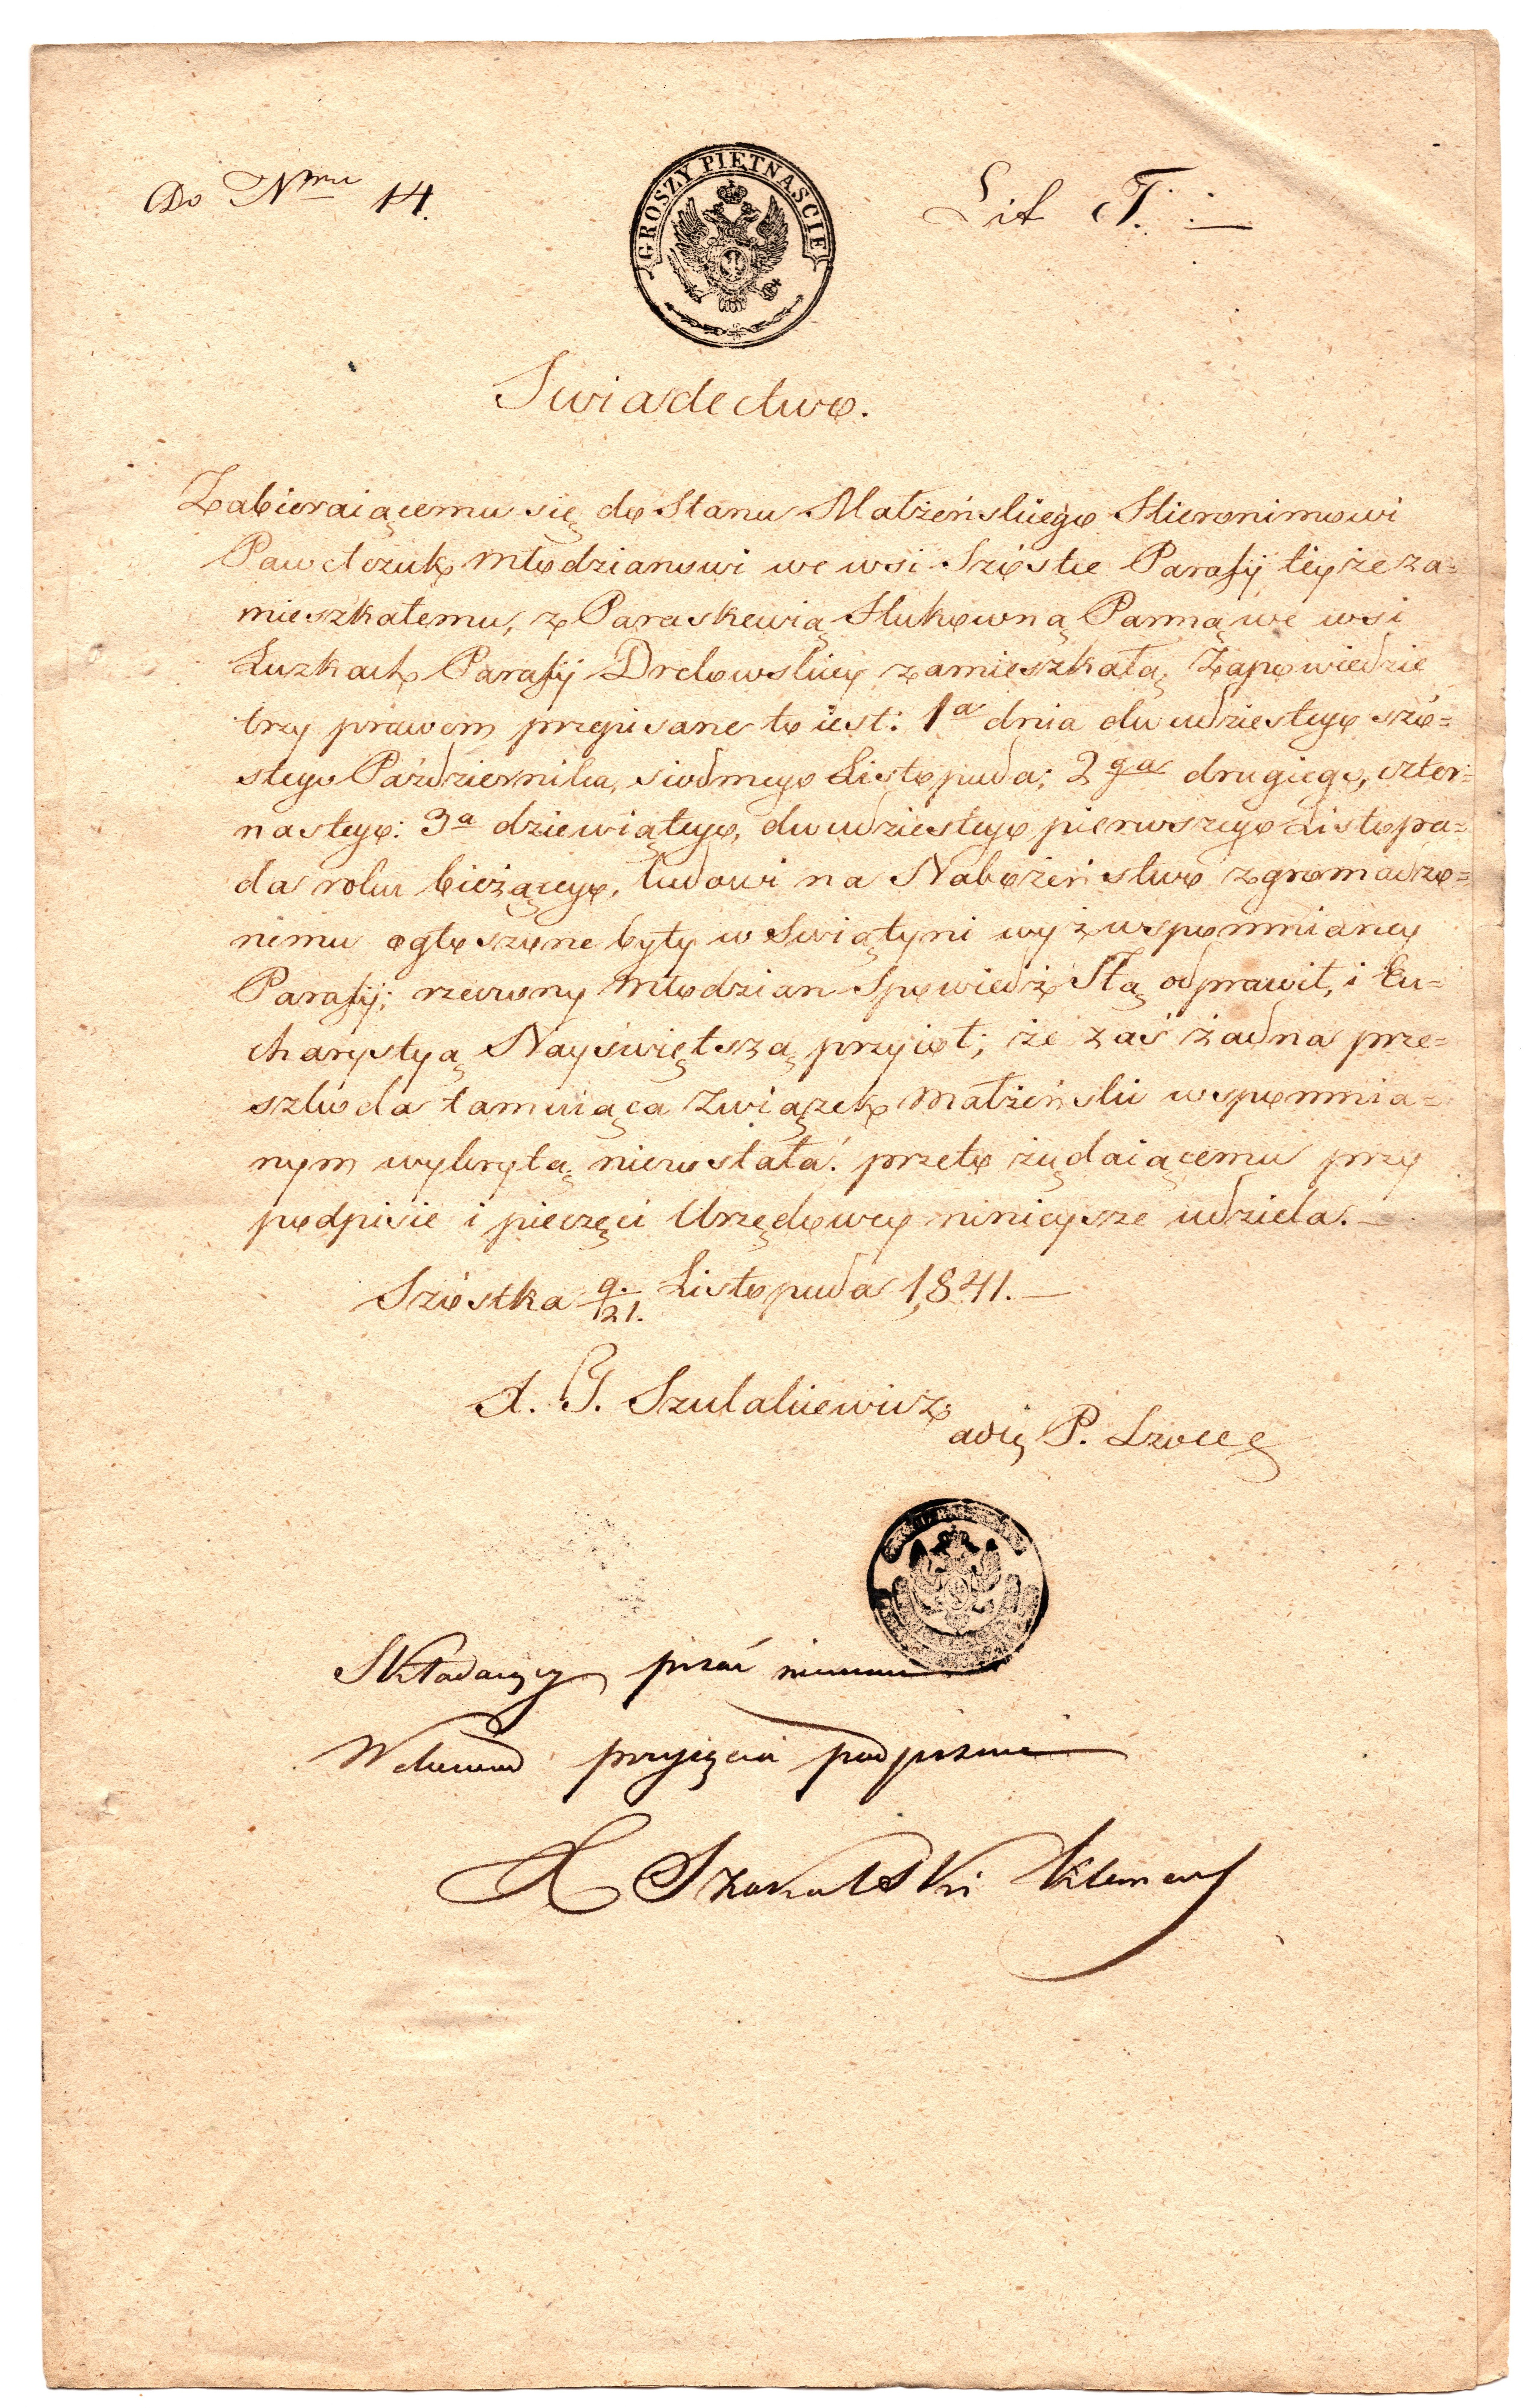 Do Nmu 14.
GROSZY PIĘTNAŚCIE
Lit T.
Swiadectwo.
Zabieraiącemu się do Stanu Małżeńskiego Hieronimowi
Pawełczuk młodzianowi we wsi Szóstce Parafij teyże za=
mieszkałemu, z Paraskewią Hukówną Panną we wsi
Łuzkach Parafij Drelowskiey zamieszkałą, Zapowiedzie
trzy prawem przepisane to iest: 1a dnia dwudziestego szó=
stego Października, siodmego Listopada; 2ga drugiego, czter=
nastego: 3a dziewiątego, dwudziestego pierwszego Listopa=
da roku bieżącego, ludowi na Nabożeństwo zgromadzo=
nemu ogłoszone były w Swiątyni wyż wspomnianey
Parafij; rzeczony młodzian Spowiedź Stą odprawił, i Eu=
charystyą Nayświętszą przyioł; że zaś żadna prze=
szkoda tamuiąca Związek małżeński wspomnia=
nym wykrytą niezostała: przeto żądaiącemu przy
podpisie i pieczęci Urzędowey ninieysze udziela.
Szóstka 9./21. Listopada 1841.
X. G. Szulakiewicz
P.
Składaiący pisać nieumie
W dowód przyięcia podpisuie
X Szokalski Klemens